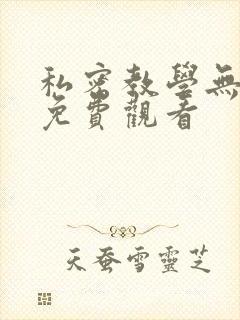 私密教學無
免費觀看
天蚕雪靈芝